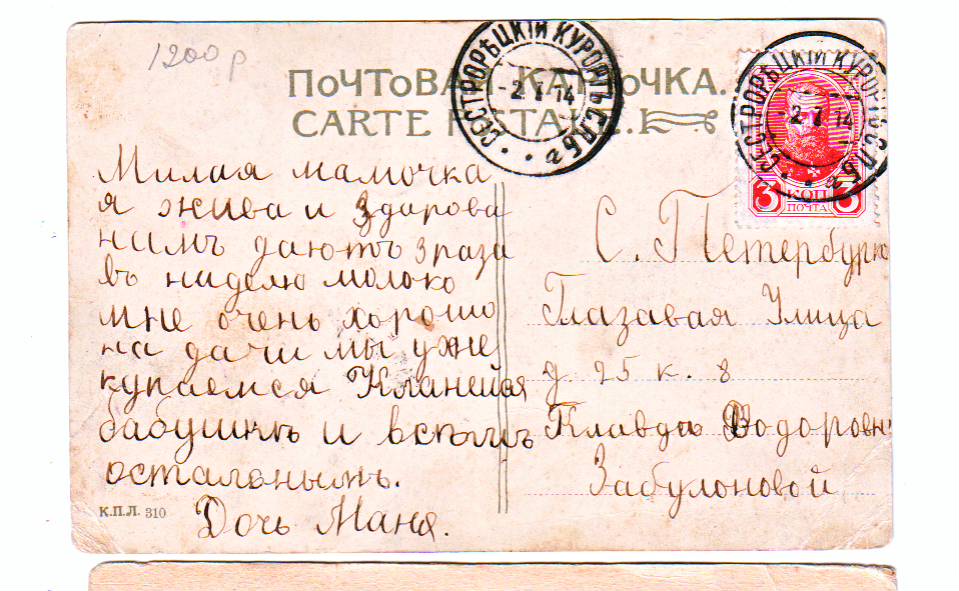 1200 р
ПОЧТОВАЯ КАРТОЧКА.
CARTE POSTALE.
СЕСТРОРѢЦКІЙ КУРОРТЪ С.П.Б.г.
-2.7.14
СЕСТРОРѢЦКІЙ КУРОРТЪ С.П.Б.г.
-2.7.14
3 КОП 3
ПОЧТА
Милая мамочка
я жива и здарова
намъ даютъ 3 раза
въ наделю молоко
мне очень хорошо
на дачи мы уже
купаемся Кланейся
бабушкѣ и всѣмъ
остальнымъ.
Дочь Маня.
С. Петербургъ
Глазавая Улица
д. 25 к. 8
Клавдѣ Ѳодоровнѣ
Забулоновой
К.П.Л. 310